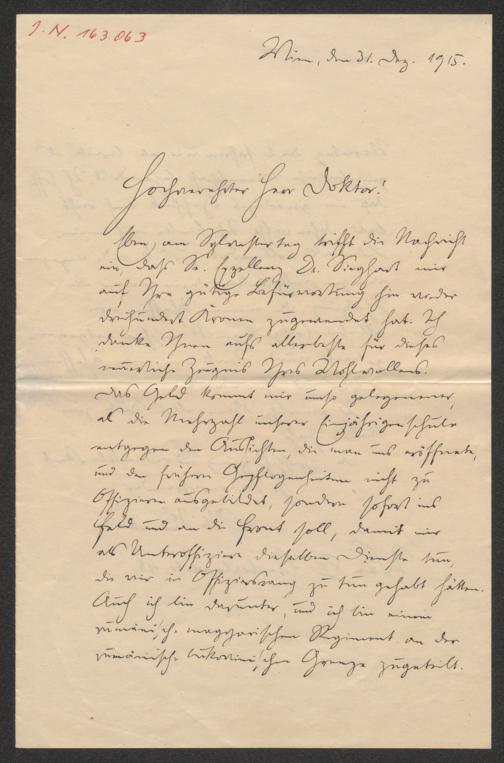 J. N. 163.063
Wien, den 31. Dez. 1915.
Hochverehrter Herr Doktor!
Eben, am Sylvestertag trifft die Nachricht
ein, daß Se. Exzellenz Dr. Sieghart mir
auf Ihre gütige Befürwortung hin wieder
dreihundert Kronen zugewendet hat. Ich
danke Ihnen aufs allerbeste für dieses
neuerliche Zeugnis Ihres Wohlwollens.
Das Geld kommt mir umso gelegener,
als die Mehrzahl unserer Einjährigenschule
entgegen den Aussichten, die man uns eröffnete,
und den frühern Gepflogenheiten nicht zu
Offizieren ausgebildet, sondern sofort ins
Feld und an die Front soll, damit wir
als Unteroffiziere dieselben Dienste tun,
die wir in Offiziersrang zu tun gehabt hätten.
Auch ich bin darunter, und ich bin einem
rumänisch-magyarischen Regiment an der
rumänisch-bukowinischen Grenze zugeteilt.